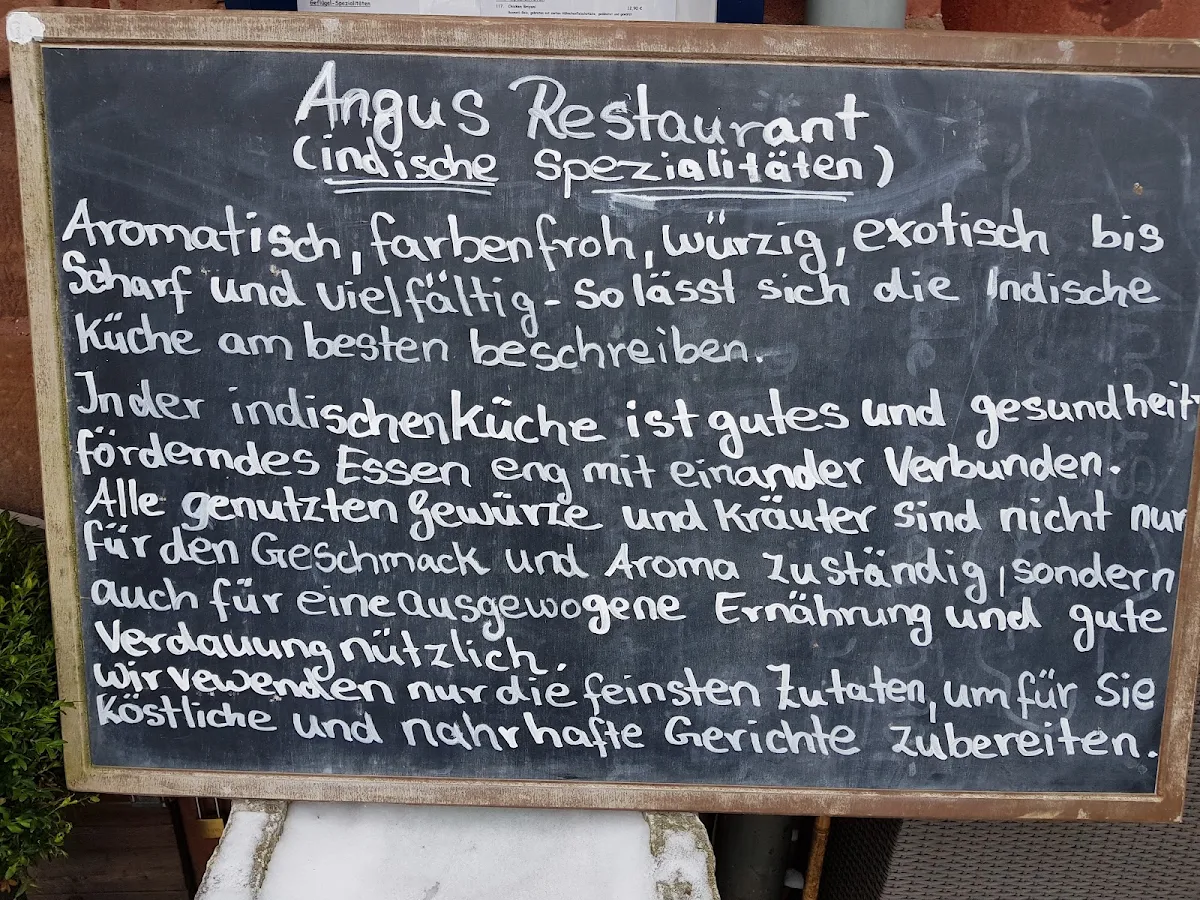 Geflügel-Spezialitäten
117. Chicken Biryani 12,90 €
Angus Restaurant
(indische Spezialitäten)
Aromatisch, farbenfroh, würzig, exotisch bis
Scharf und vielfältig - So lässt sich die Indische
Küche am besten beschreiben.
In der indischen Küche ist gutes und gesundheit-
förderndes Essen eng mit einander Verbunden.
Alle genutzten Gewürze und Kräuter sind nicht nur
für den Geschmack und Aroma zuständig, sondern
auch für eine ausgewogene Ernährung und gute
Verdauung nützlich.
Wir vewenden nur die feinsten Zutaten, um für Sie
Köstliche und nahrhafte Gerichte zubereiten.